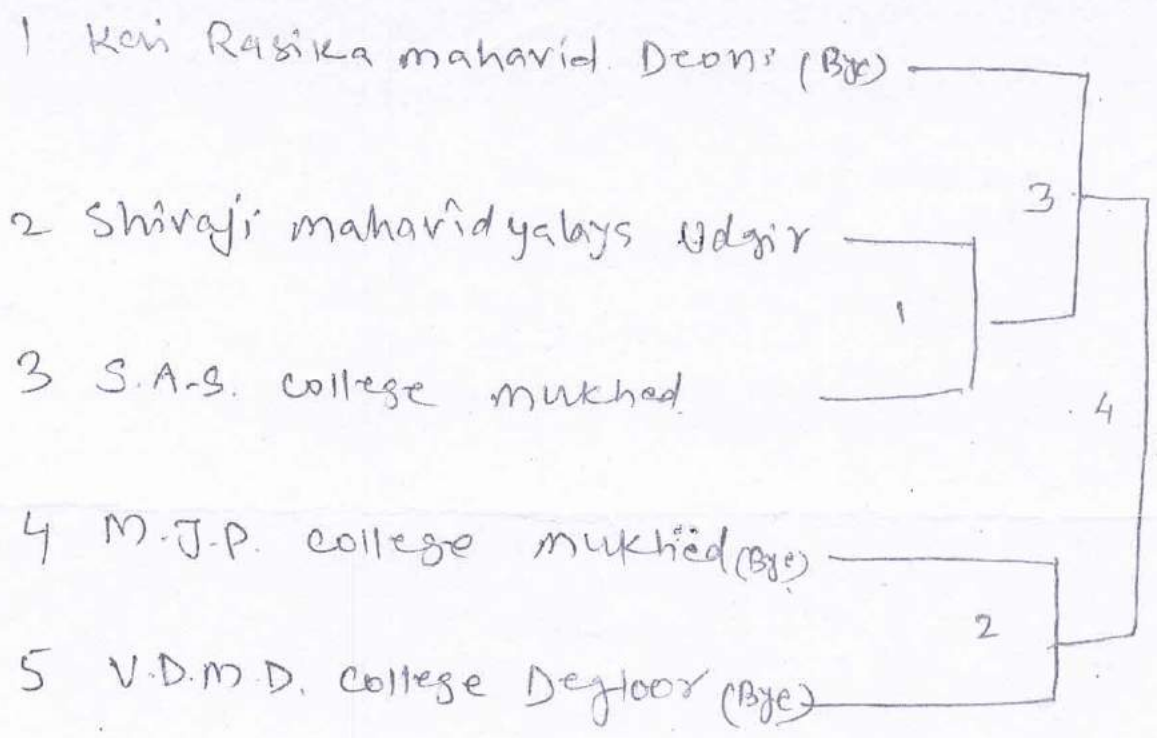 1 Kavi Rasika mahavid. Deoni (Bye)
3
2 Shivaji mahavidyalays Udgir
1
3 S.A.S. college mukhed
4
4 M.J.P. college mukhed (Bye)
2
5 V.D.M.D. college Degloor (Bye)